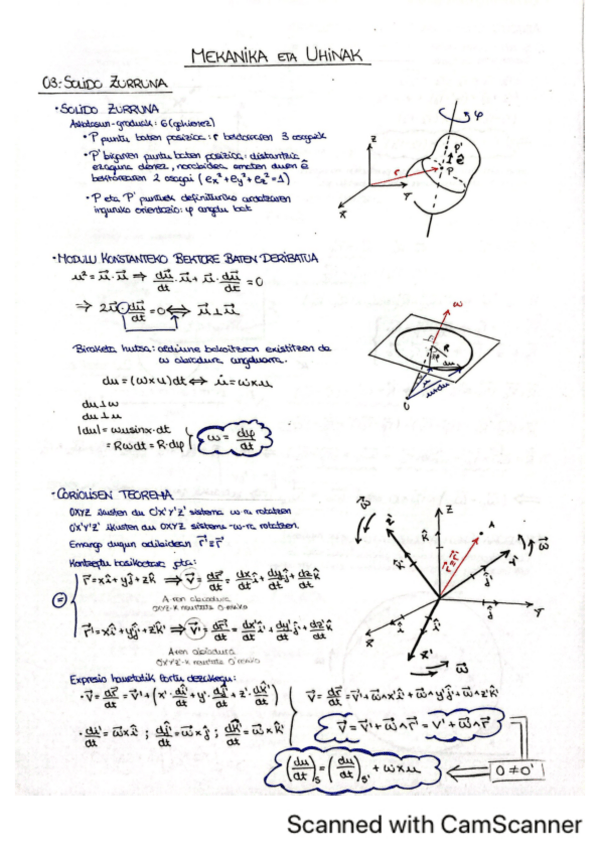 MEKANIKA ETA UHINAK
03: SOLIDO ZURRUNA
· SOLIDO ZURRUNA
Askatasun-graduak: 6 (gehienez)
· P puntu baten posizioa: r bektorearen 3 osagaik
· P' bigarren puntu baten posizioa: distantzia
ezaguna denez, norabidea ematen duen ê
bektorearen 2 osagai (ex²+ey²+ez²=1)
· P eta P' puntuek definituriko ardatzaren
inguruko orientazioa: φ angelu bat
Z
Y
X
r
P'
ê
P
φ
· MODULU KONSTANTEKO BEKTORE BATEN DERIBATUA
u² = u⃗·u⃗ ⇒ du⃗/dt · u⃗ + u⃗ · du⃗/dt = 0
⇒ 2u⃗ · du⃗/dt = 0 ⇔ u⃗ ⊥ u⃗
Biraketa hutsa: aldiune bakoitzean existitzen da
ω abiadura angeluarra.
du = (ω×u)dt ⇔ u̇ = ω×u
du ⊥ ω
du ⊥ u
|du| = ωusinα·dt
= Rωdt = R·dφ
ω = dφ/dt
ω
R
du
u
u+du
O
· CORIOLISEN TEOREMA
OXYZ ikusten du O'X'Y'Z' sistema ω-n rotatzen
O'X'Y'Z' ikusten du OXYZ sistema -ω-n rotatzen.
Emango dugun adibidean r⃗'=r⃗
Kontzeptu basikoetara jota:
· r⃗ = xî+yĵ+zk̂ ⇒ v⃗ = dr⃗/dt = dx/dt î + dy/dt ĵ + dz/dt k̂
A-ren abiadura
OXYZ-k neurtuta O-rekiko
· r⃗' = x'î'+y'ĵ'+z'k̂' ⇒ v⃗' = dr⃗'/dt = dx'/dt î' + dy'/dt ĵ' + dz'/dt k̂'
A-ren abiadura
O'X'Y'Z'-k neurtuta O'-rekiko
Expresio hauetatik lortu dezakegu:
· v⃗ = dr⃗/dt = v⃗' + (x'·dî'/dt + y'·dĵ'/dt + z'·dk̂'/dt)
· dî'/dt = ω⃗×î' ; dĵ'/dt = ω⃗×ĵ' ; dk̂'/dt = ω⃗×k̂'
v⃗ = dr⃗/dt = v⃗' + ω⃗∧x'î + ω⃗∧y'ĵ + ω⃗∧z'k̂
v⃗ = v⃗' + ω⃗∧r⃗' = v⃗' + ω⃗∧r⃗
(du/dt)s = (du/dt)s' + ω×u
O≠O'
Scanned with CamScanner